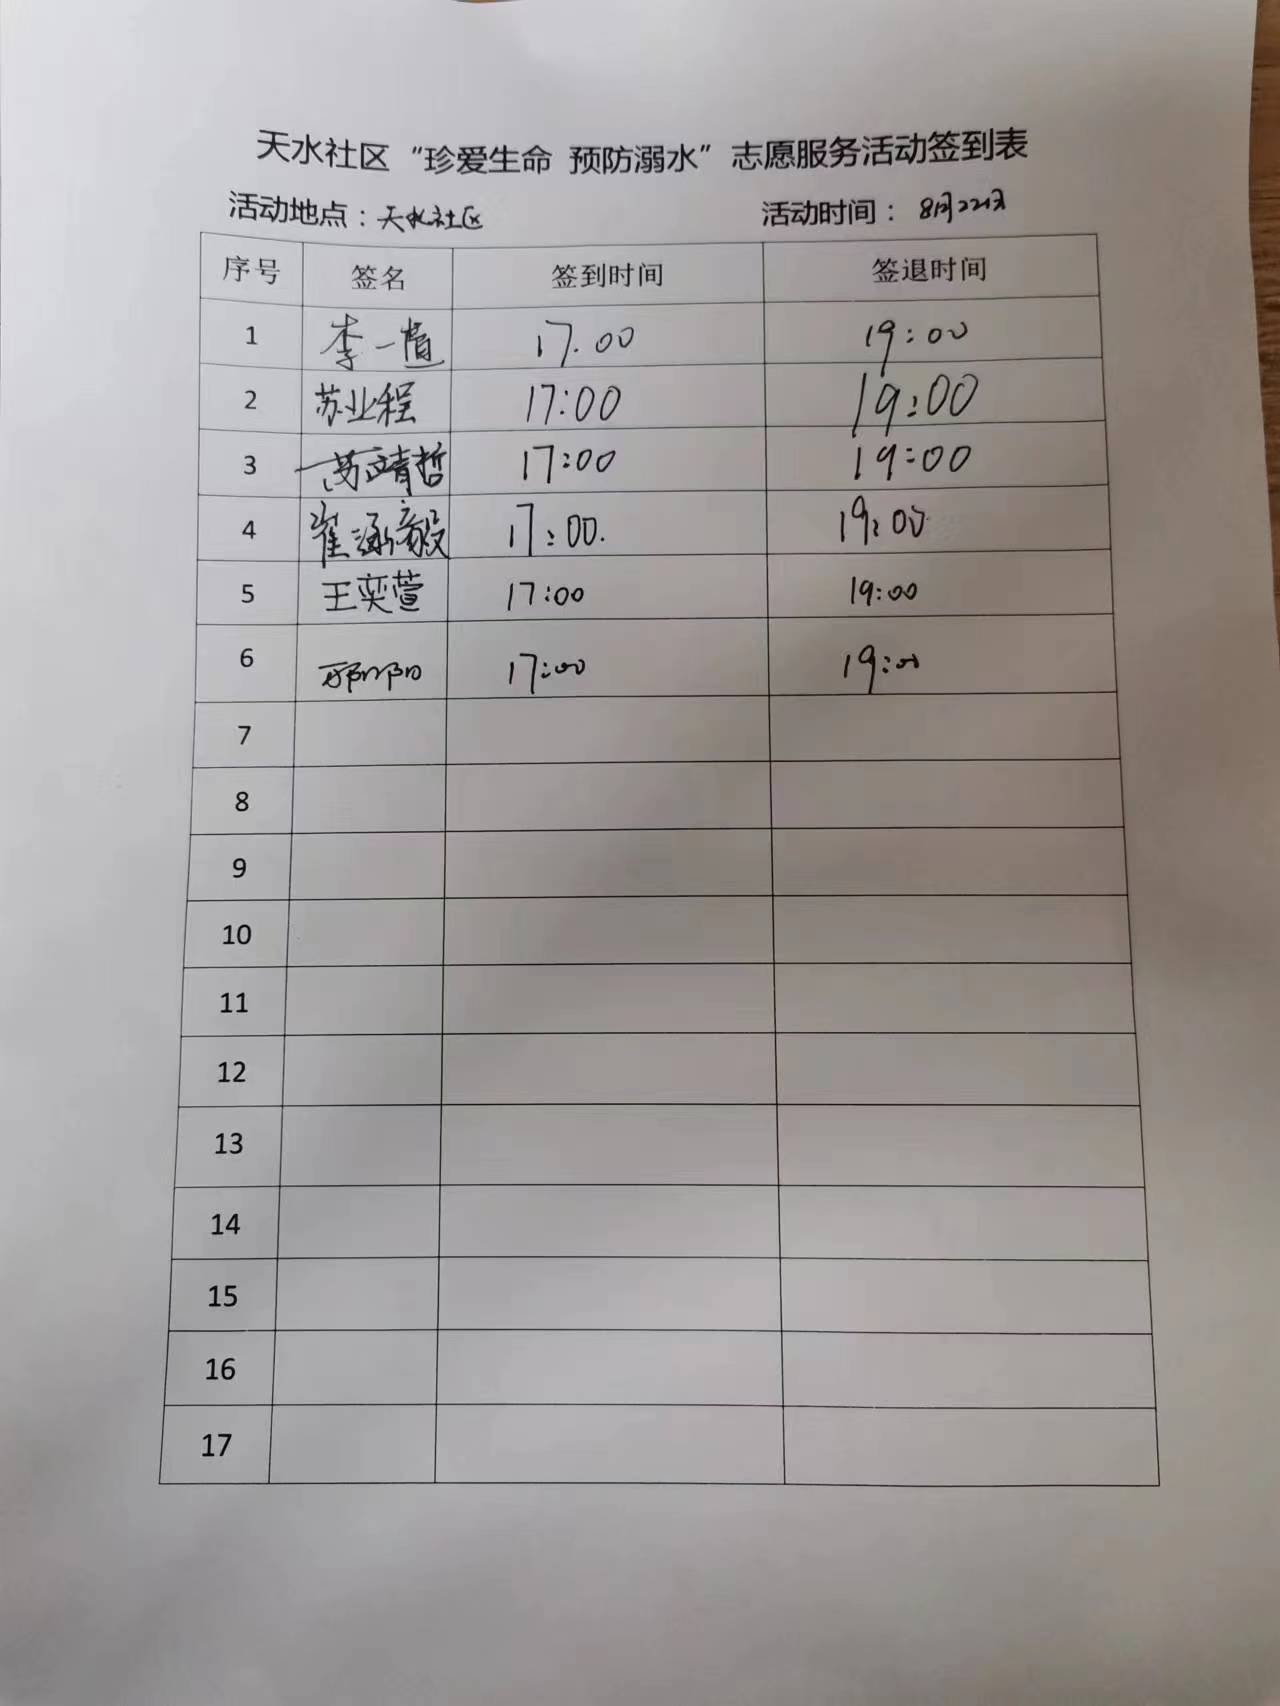 天水社区“珍爱生命 预防溺水”志愿服务活动签到表
活动地点：天水社区 活动时间： 8月22日
序号 签名 签到时间 签退时间
1 李一 17.00 19:00
2 苏业程 17:00 19:00
3 靖哲 17:00 19:00
4 崔涵毅 17:00. 19:00
5 王奕萱 17:00 19:00
6 17:00 19:00
7
8
9
10
11
12
13
14
15
16
17